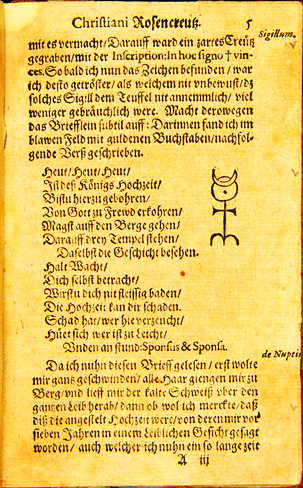 Christiani Rosencreutz. 5
Sigillum.
mit es vermacht/ Darauff ward ein zartes Creütz
gegraben/ mit der Inscription: In hoc signo † vin-
ces. So bald ich nun das Zeichen befunden/ war
ich desto getröster/ als welchem nit vnbewust/ dz
solches Sigill dem Teuffel nit annemmlich/ viel
weniger gebräuchlich were. Macht derowegen
das Briefflein subtil auff: Darinnen fand ich im
blawen Feld mit guldenen Buchstaben/ nachfol-
gende Verß geschrieben.
Heut/ Heut/ Heut/
Ist deß Königs Hochzeit/
Bistu hierzu gebohren/
Von Gott zu Frewd erkohren/
Magst auff den Berge gehen/
Darauff drey Tempel stehen/
Daselbst die Geschicht besehen.
Halt Wacht/
Dich selbst betracht/
Wirstu dich nit fleissig baden/
Die Hochzeit kan dir schaden.
Schad hat/ wer hie verzeucht/
Hüet sich wer ist zu Leicht/
Vnden an stund: Sponsus & Sponsa.
de Nuptiis
Da ich nuhn diesen Brieff gelesen/ erst wolte
mir gantz geschwinden/ alle Haar giengen mir zu
Berg/ vnd lieff mir der kalte Schweiß vber den
gantzen Leib herab/ dann ob wol ich merckte/ daß
diß die angestelt Hochzeit were/ von deren mir vor
sieben Jahren in einem Leiblichen Gesicht gesagt
worden/ auch welcher ich nuhn ein so lange zeit
A iii